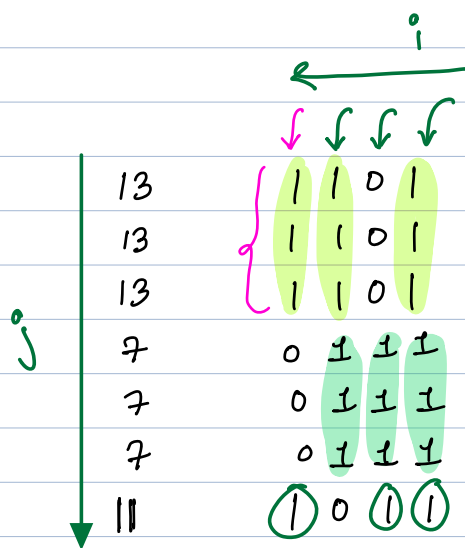 i
13 1 1 0 1
13 1 1 0 1
13 1 1 0 1
j
7 0 1 1 1
7 0 1 1 1
7 0 1 1 1
11 1 0 1 1